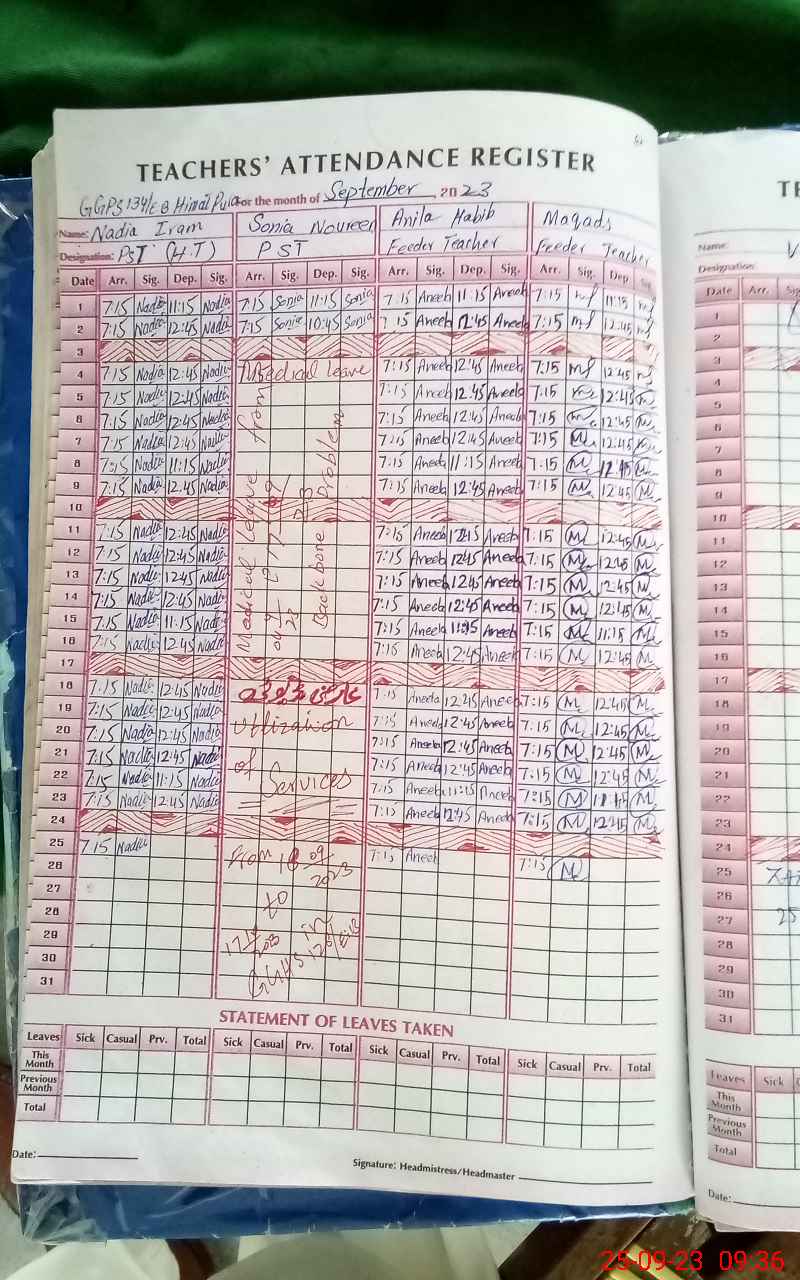 TEACHERS' ATTENDANCE REGISTER
GGPS 134/E B Himat Pura For the month of September, 2023
Name: Nadia Iram Sonia Noureen Anila Habib Maqads
Designation: PST (H.T) PST Feeder Teacher Feeder Teacher
Date Arr. Sig. Dep. Sig. Arr. Sig. Dep. Sig. Arr. Sig. Dep. Sig. Arr. Sig. Dep. Sig.
1 7:15 Nadia 11:15 Nadia 7:15 Sonia 11:15 Sonia 7:15 Aneeb 11:15 Aneeb 7:15 11:15
2 7:15 Nadia 12:45 Nadia 7:15 Sonia 10:45 Sonia 7:15 Aneeb 12:45 Aneeb 7:15 12:45
3
4 7:15 Nadia 12:45 Nadia Medical leave 7:15 Aneeb 12:45 Aneeb 7:15 12:45
5 7:15 Nadia 12:45 Nadia 7:15 Aneeb 12:45 Aneeb 7:15 12:45
6 7:15 Nadia 12:45 Nadia 7:15 Aneeb 12:45 Aneeb 7:15 12:45
7 7:15 Nadia 12:45 Nadia 7:15 Aneeb 12:45 Aneeb 7:15 M 12:45
8 7:15 Nadia 11:15 Nadia 7:15 Aneeb 11:15 Aneeb 7:15 M 12:45 M
9 7:15 Nadia 12:45 Nadia 7:15 Aneeb 12:45 Aneeb 7:15 M 12:45 M
10
11 7:15 Nadia 12:45 Nadia 7:15 Aneeb 12:45 Aneeb 7:15 M 12:45 M
12 7:15 Nadia 12:45 Nadia 7:15 Aneeb 12:45 Aneeb 7:15 M 12:45 M
13 7:15 Nadia 12:45 Nadia 7:15 Aneeb 12:45 Aneeb 7:15 M 12:45 M
14 7:15 Nadia 12:45 Nadia 7:15 Aneeb 12:45 Aneeb 7:15 M 12:45 M
15 7:15 Nadia 11:15 Nadia 7:15 Aneeb 11:15 Aneeb 7:15 M 11:15 M
16 7:15 Nadia 12:45 Nadia 7:15 Aneeb 12:45 Aneeb 7:15 M 12:45 M
Medical Leave from
Backbone Problem
17
18 7:15 Nadia 12:45 Nadia 7:15 Aneeb 12:45 Aneeb 7:15 M 12:45 M
19 7:15 Nadia 12:45 Nadia utlization 7:15 Aneeb 12:45 Aneeb 7:15 M 12:45 M
20 7:15 Nadia 12:45 Nadia 7:15 Aneeb 12:45 Aneeb 7:15 M 12:45 M
21 7:15 Nadia 12:45 Nadia of 7:15 Aneeb 12:45 Aneeb 7:15 M 12:45 M
22 7:15 Nadia 11:15 Nadia Services 7:15 Aneeb 11:15 Aneeb 7:15 M 11:45 M
23 7:15 Nadia 12:45 Nadia 7:15 Aneeb 12:45 Aneeb 7:15 M 12:45 M
24
25 7:15 Nadia From 18 09 2023 7:15 Aneeb 7:15 M
26
27 to
28
29 in
30 GGHS 126/E.B
31
STATEMENT OF LEAVES TAKEN
Leaves Sick Casual Prv. Total Sick Casual Prv. Total Sick Casual Prv. Total Sick Casual Prv. Total
This Month
Previous Month
Total
Date:
Signature: Headmistress/Headmaster
Name:
Designation:
Date Arr.
1
2
3
4
5
6
7
8
9
10
11
12
13
14
15
16
17
18
19
20
21
22
23
24
25
26
27 25
28
29
30
31
Leaves Sick
This Month
Previous Month
Total
Date:
25-09-23 09:36